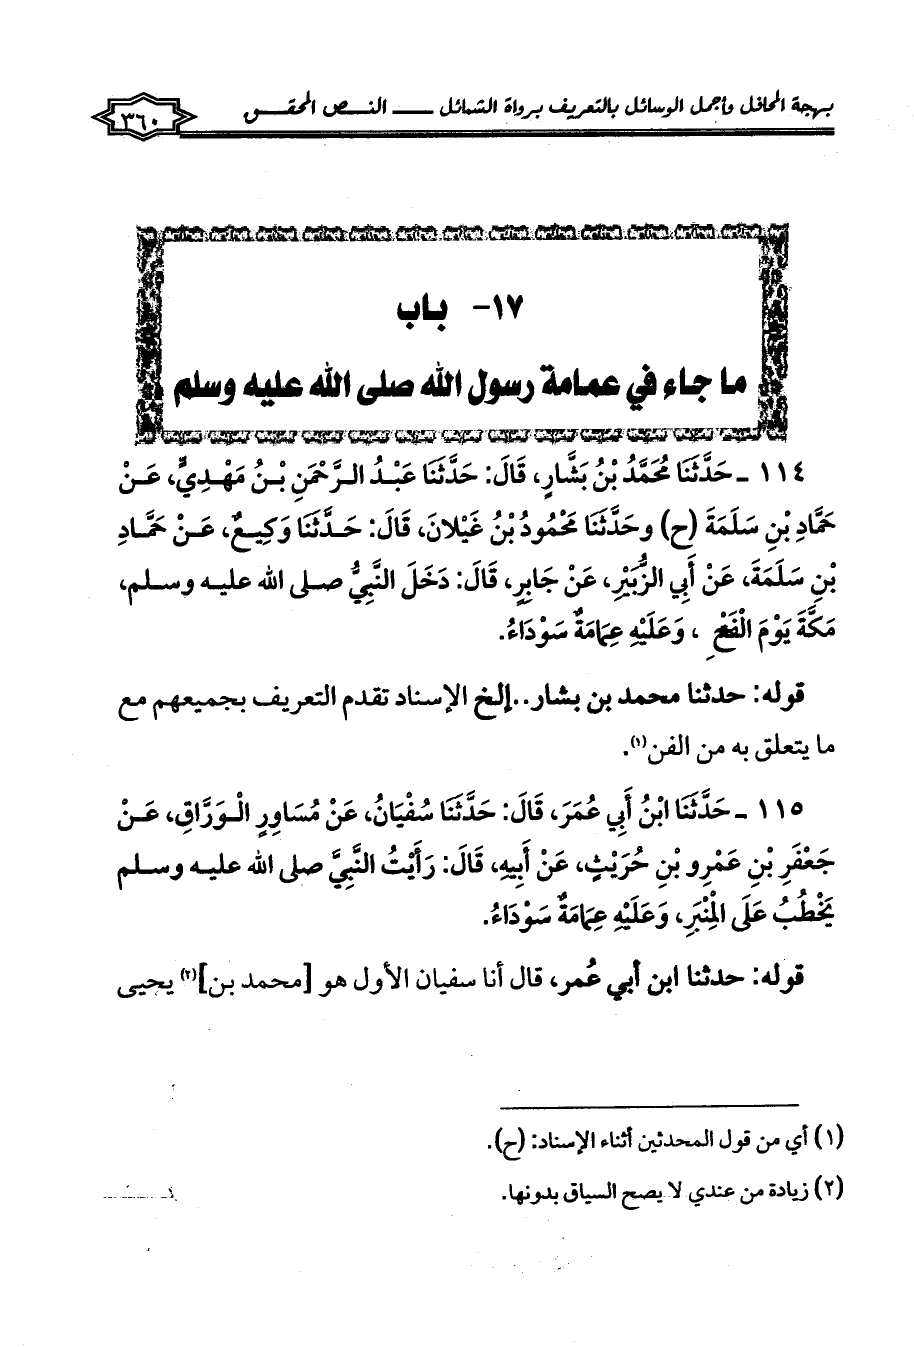 بهجة المحافل وأجمل الوسائل بالتعريف برواة الشمائل ـــ النص المحقق
٣٦٠
١٧- باب
ما جاء في عمامة رسول الله صلى الله عليه وسلم
١١٤ ـ حَدَّثَنَا مُحَمَّدُ بْنُ بَشَّارٍ، قَالَ: حَدَّثَنَا عَبْدُ الرَّحْمَنِ بْنُ مَهْدِيٍّ، عَنْ
حَمَّادِ بْنِ سَلَمَةَ (ح) وحَدَّثَنَا مَحْمُودُ بْنُ غَيْلانَ، قَالَ: حَدَّثَنَا وَكِيعٌ، عَنْ حَمَّادِ
بْنِ سَلَمَةَ، عَنْ أَبِي الزُّبَيْرِ، عَنْ جَابِرٍ، قَالَ: دَخَلَ النَّبِيُّ صلى الله عليه وسلم،
مَكَّةَ يَوْمَ الْفَتْحِ ، وَعَلَيْهِ عِمَامَةٌ سَوْدَاءُ.
قوله: حدثنا محمد بن بشار..إلخ الإسناد تقدم التعريف بجميعهم مع
ما يتعلق به من الفن(١).
١١٥ ـ حَدَّثَنَا ابْنُ أَبِي عُمَرَ، قَالَ: حَدَّثَنَا سُفْيَانُ، عَنْ مُسَاوِرٍ الْوَرَّاقِ، عَنْ
جَعْفَرِ بْنِ عَمْرِو بْنِ حُرَيْثٍ، عَنْ أَبِيهِ، قَالَ: رَأَيْتُ النَّبِيَّ صلى الله عليه وسلم
يَخْطُبُ عَلَى الْمِنْبَرِ، وَعَلَيْهِ عِمَامَةٌ سَوْدَاءُ.
قوله: حدثنا ابن أبي عُمر، قال أنا سفيان الأول هو [محمد بن](٢) يحيى
(١) أي من قول المحدثين أثناء الإسناد: (ح).
(٢) زيادة من عندي لا يصح السياق بدونها.